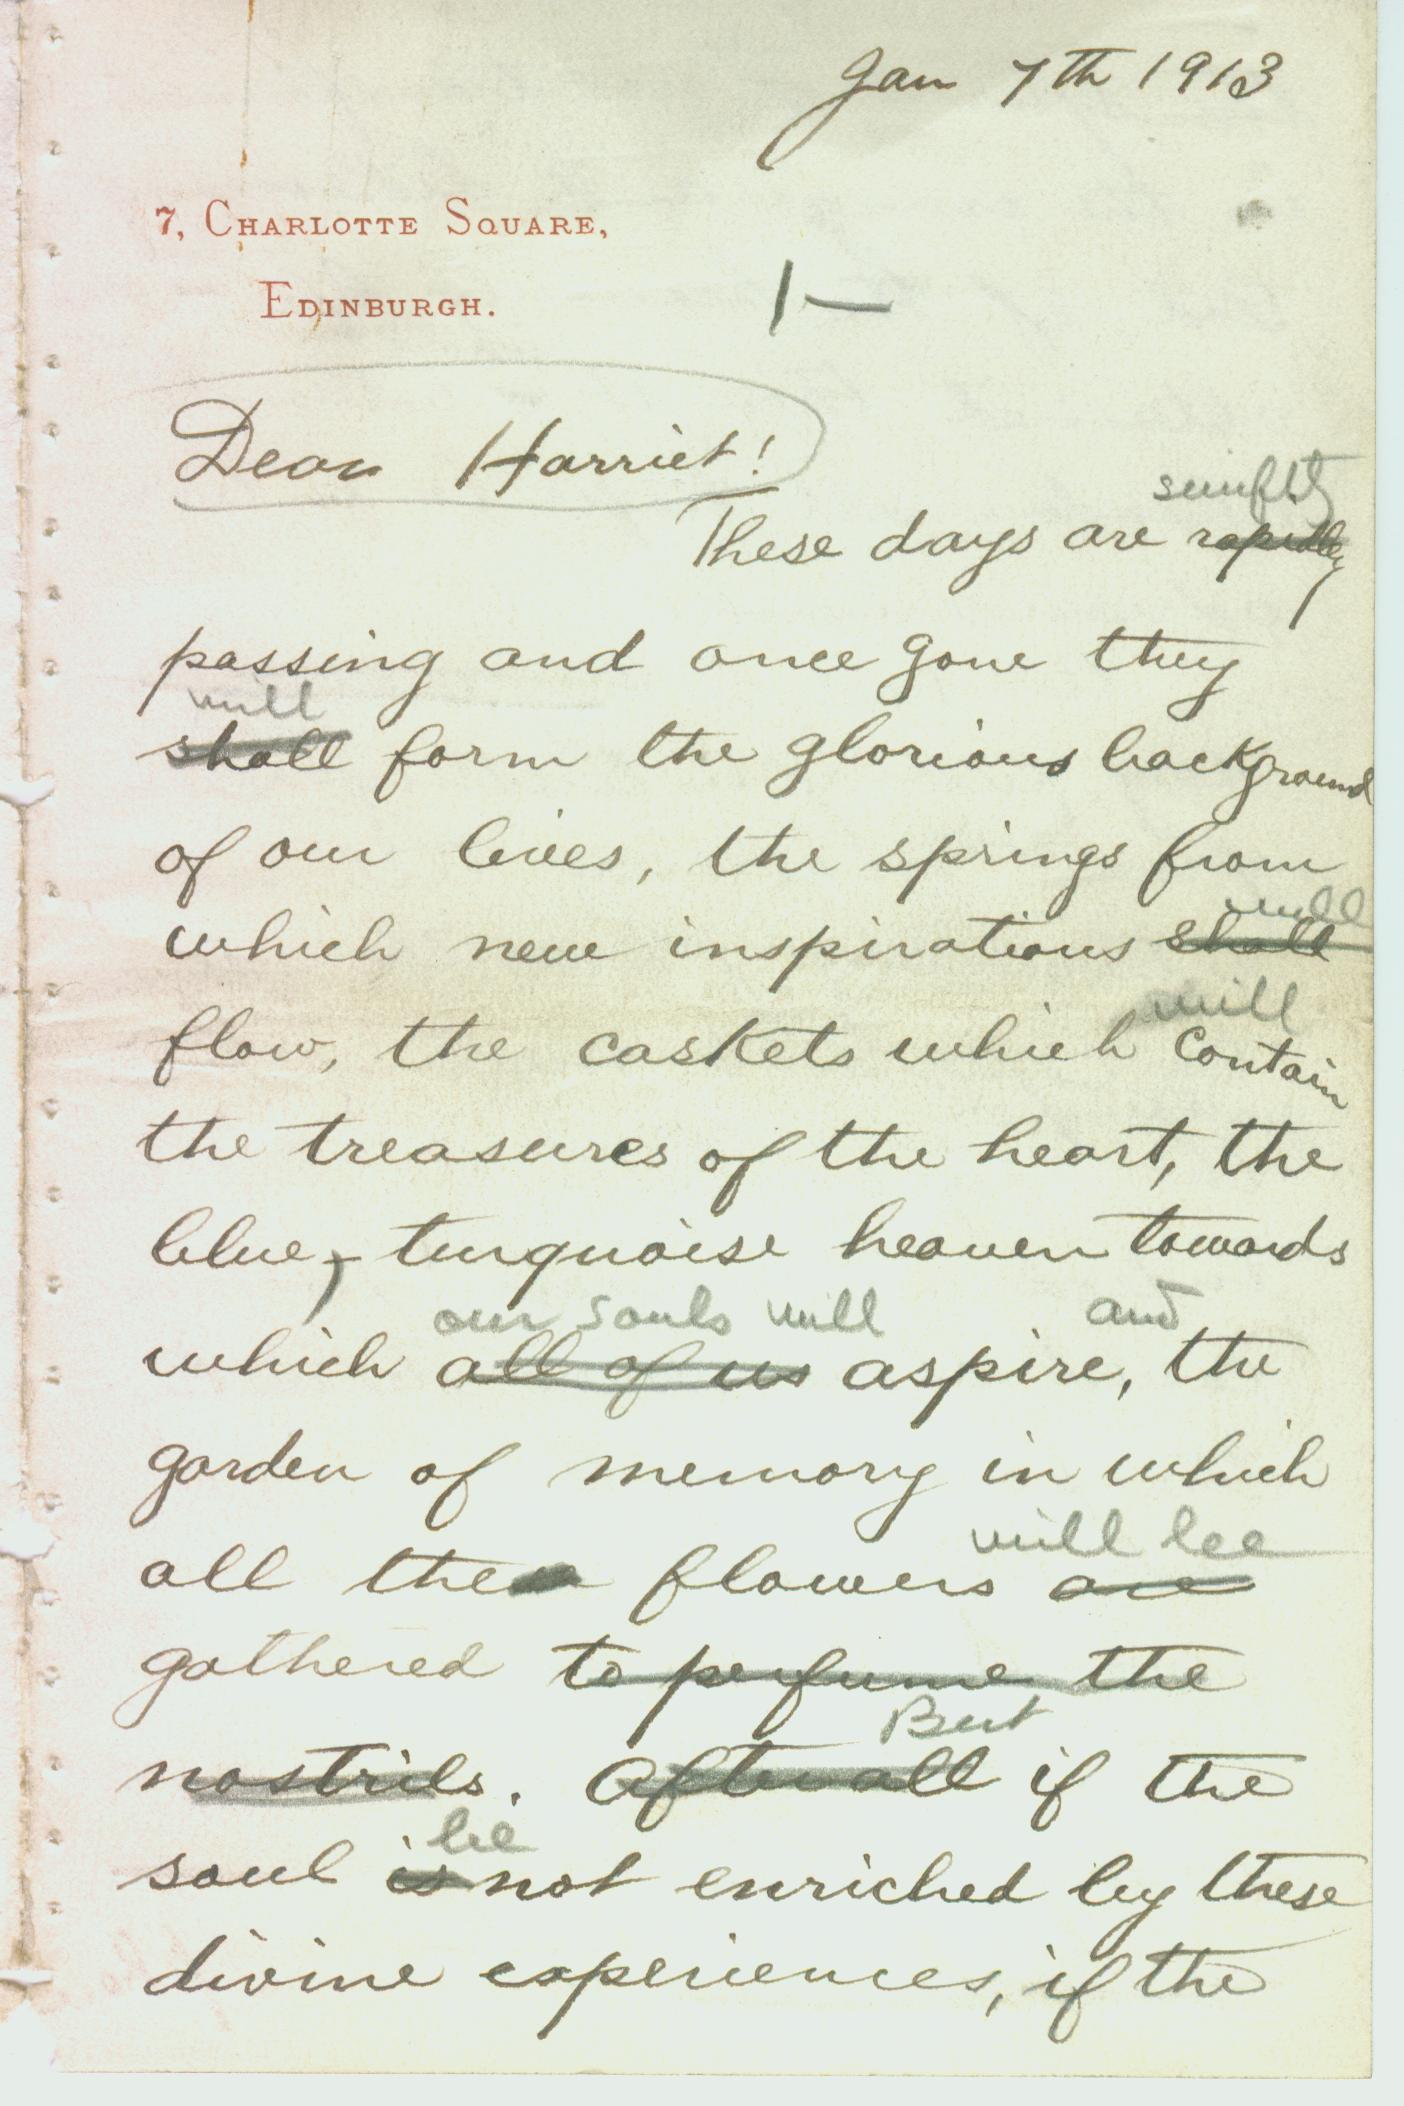 Jan 7th 1913
7, CHARLOTTE SQUARE,
EDINBURGH.
1—
Dear Harriet!
swiftly
These days are rapidly
passing and once gone they
will
shall form the glorious background
of our lives, the springs from
will
which new inspirations shall
will
flow, the caskets which contain
the treasures of the heart, the
blue, turquoise heaven towards
our souls will and
which all of us aspire, the
garden of memory in which
will be
all the flowers are
gathered to perfume the
But
nostrils. After all if the
be
soul is not enriched by these
divine experiences, if the